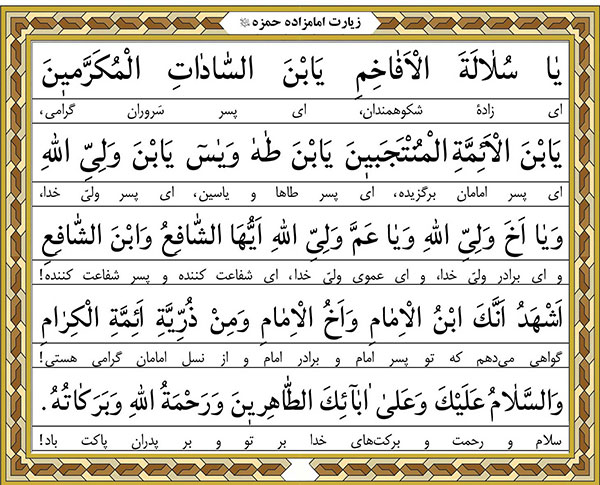 زیارت امامزاده حمزه
یٰا سُلٰالَةَ الْاَفٰاخِمِ یَابْنَ السّٰادٰاتِ الْمُکَرَّمینَ
ای زادهٔ شکوهمندان، ای پسر سَروران گرامی،
یَابْنَ الْاَئِمَّةِ الْمُنْتَجَبینَ یَابْنَ طٰهٰ وَیٰسٓ یَابْنَ وَلِیِّ اللهِ
ای پسر امامان برگزیده، ای پسر طاها و یاسین، ای پسر ولیّ خدا،
وَیٰا اَخَ وَلِیِّ اللهِ وَیٰا عَمَّ وَلِیِّ اللهِ اَیُّهَا الشّٰافِعُ وَابْنَ الشّٰافِعِ
و ای برادر ولیّ خدا، و ای عموی ولیّ خدا، ای شفاعت کننده و پسر شفاعت کننده!
اَشْهَدُ اَنَّکَ ابْنُ الْاِمٰامِ وَاَخُ الْاِمٰامِ وَمِنْ ذُرِّیَّةِ اَئِمَّةِ الْکِرٰامِ
گواهی می‌دهم که تو پسر امام و برادر امام و از نسل امامان گرامی هستی!
وَالسَّلٰامُ عَلَیْکَ وَعَلیٰ اٰبٰآئِکَ الطّٰاهِرینَ وَرَحْمَةُ اللهِ وَبَرَکٰاتُهُ.
سلام و رحمت و برکت‌های خدا بر تو و بر پدران پاکت باد!